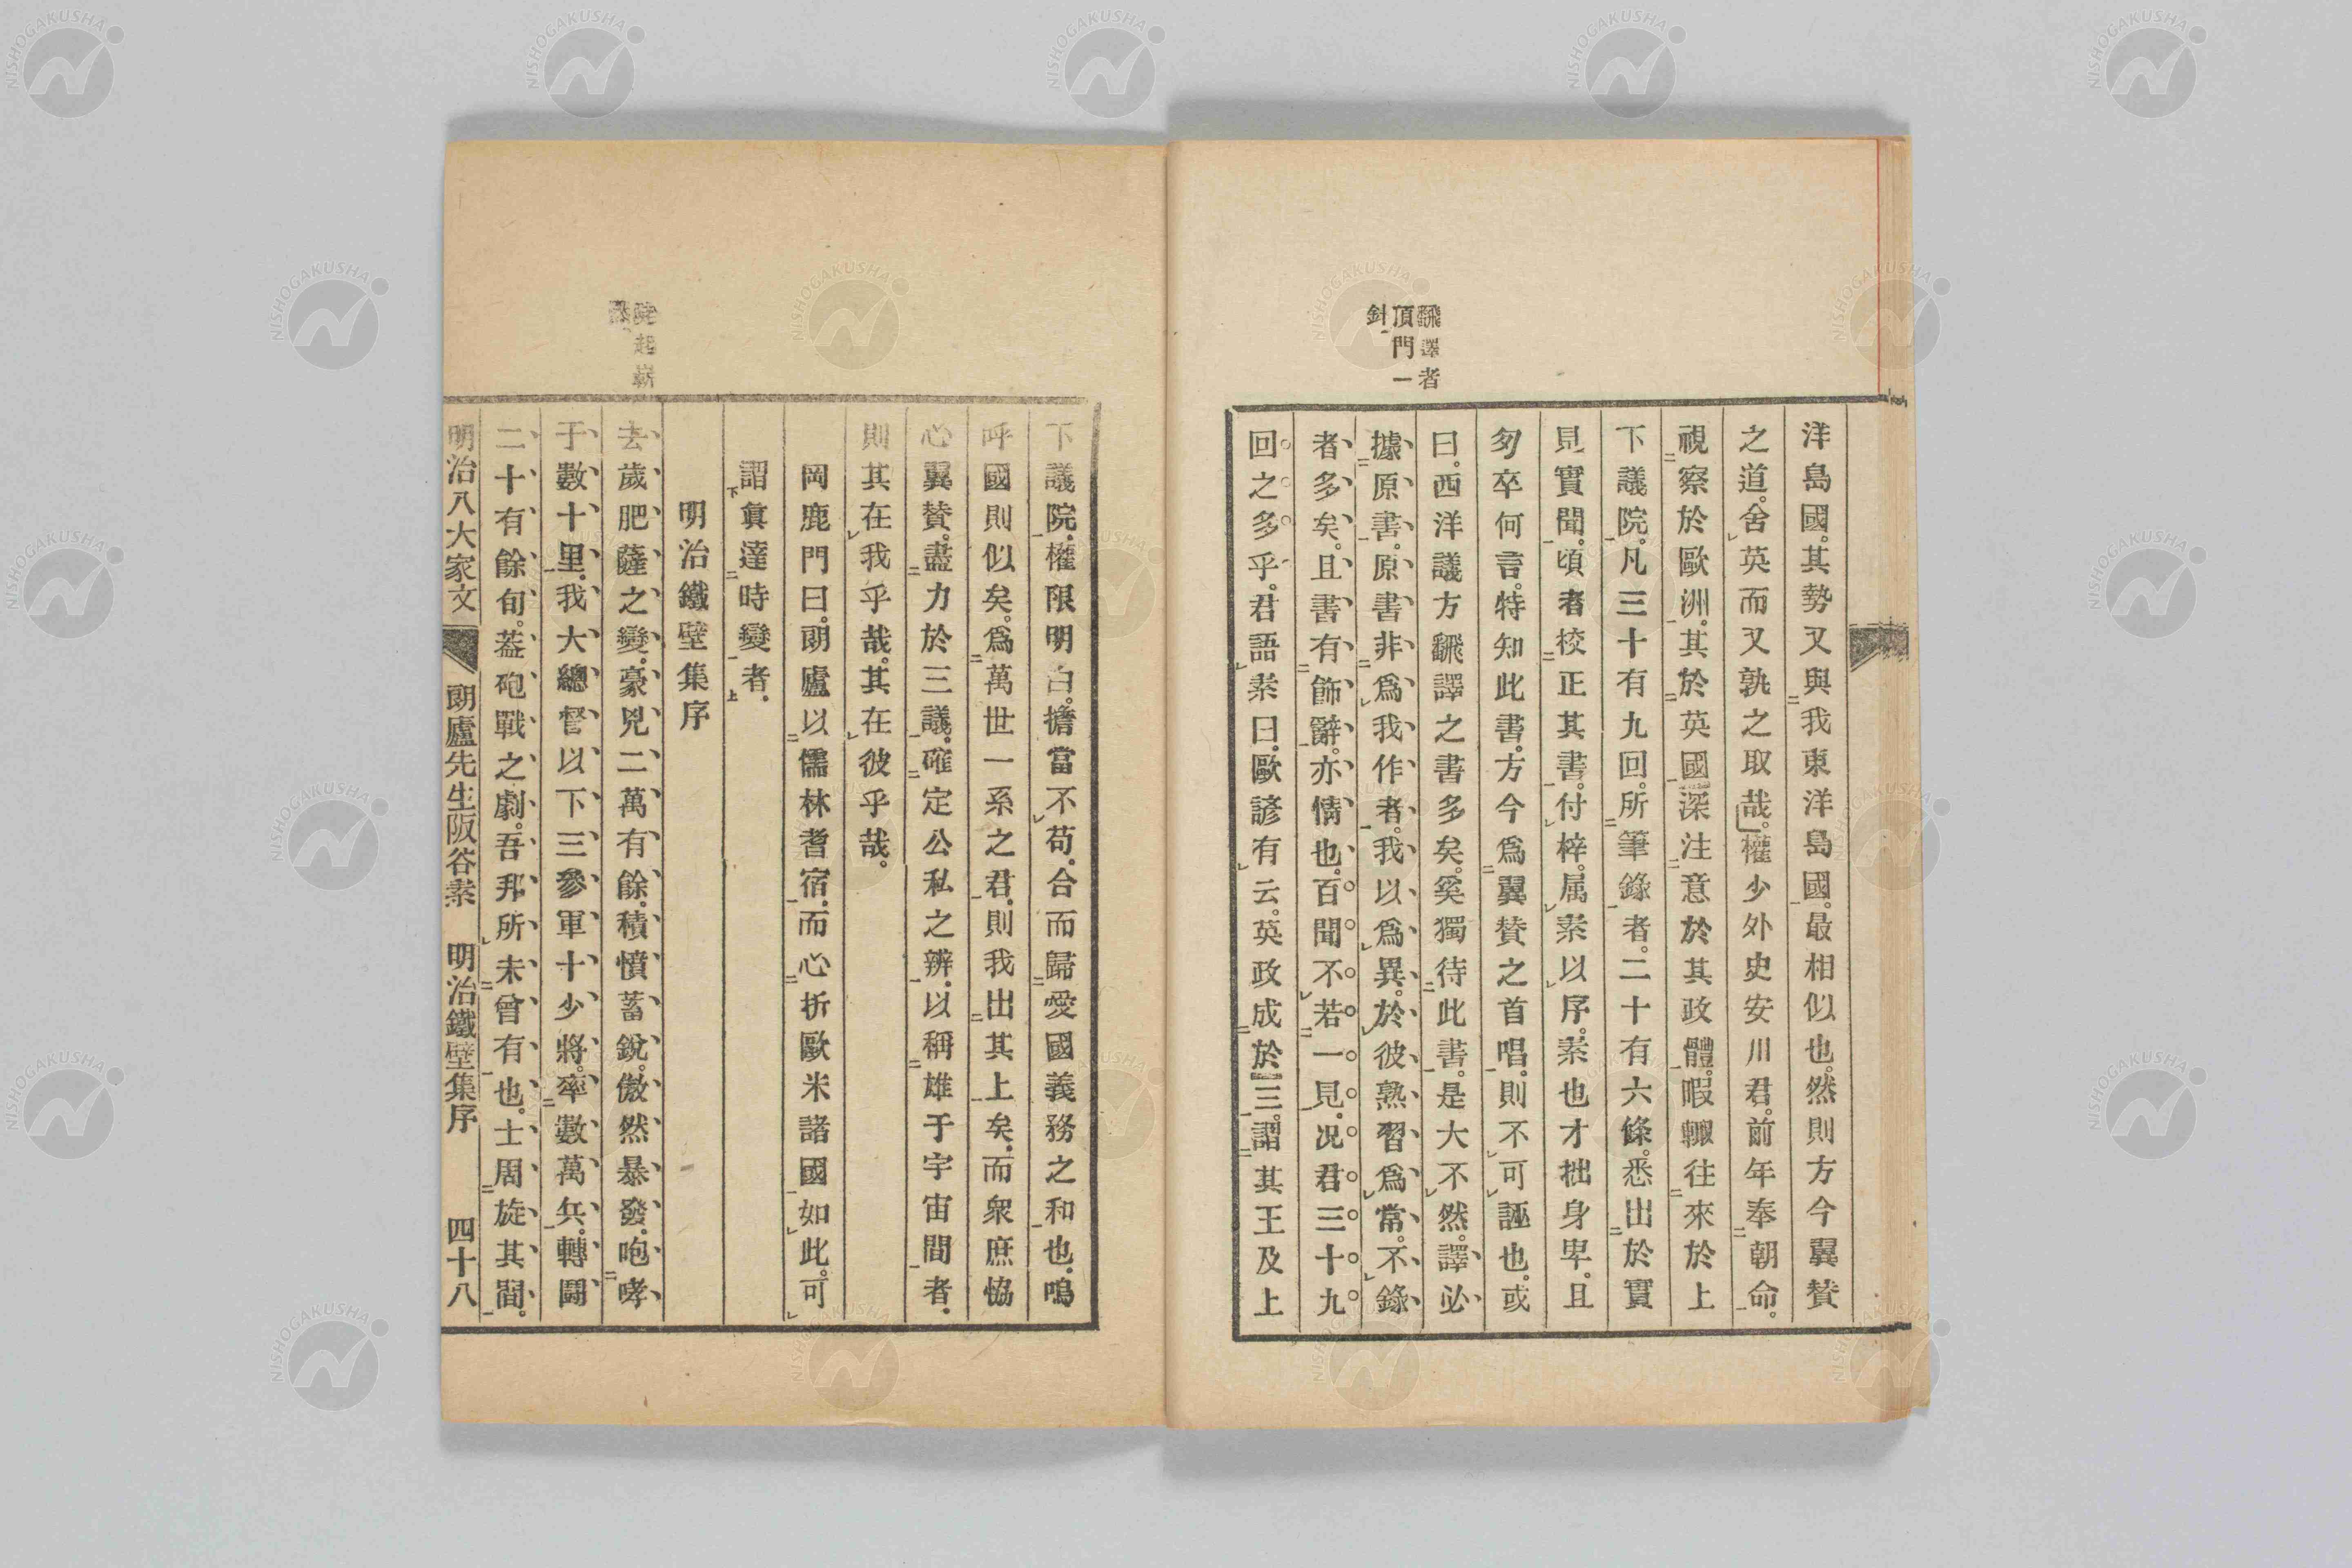 飜譯者
頂門一
針
洋島國。其勢又與我東洋島國。最相似也。然則方今翼賛
之道。舍英而又孰之取哉。權少外史安川君。前年奉朝命。
視察於歐洲。其於英國深注意於其政體。暇輙往來於上
下議院。凡三十有九回。所筆錄者。二十有六條。悉出於實
見實聞。頃者校正其書。付梓。属素以序。素也才拙身卑。且
匆卒何言。特知此書。方今爲翼賛之首唱。則不可誣也。或
曰。西洋議方飜譯之書多矣。奚獨待此書。是大不然。譯必
據原書。原書非爲我作者。我以爲異。於彼熟習爲常。不錄
者多矣。且書有飾辭。亦情也。百聞不若一見。况君三十九
回之多乎。君語素曰。歐諺有云。英政成於三。謂其王及上
下議院。權限明白。擔當不苟。合而歸愛國義務之和也。嗚
呼國則似矣。爲萬世一系之君。則我出其上矣。而衆庶恊
心翼賛。盡力於三議。確定公私之辨。以稱雄于宇宙間者。
則其在我乎哉。其在彼乎哉。
岡鹿門曰。朗廬以儒林耆宿。而心折歐米諸國如此。可
謂眞達時變者。
明治鐵壁集序
起嶄
去歲肥薩之變。豪兇二萬有餘。積憤蓄銳。傲然暴發。咆哮
于數十里。我大總督以下三參軍十少將。率數萬兵。轉鬪
二十有餘旬。葢砲戰之劇。吾邦所未曾有也。士周旋其間。
明治八大家文 朗廬先生阪谷素 明治鐵壁集序 四十八
NISHOGAKUSHA